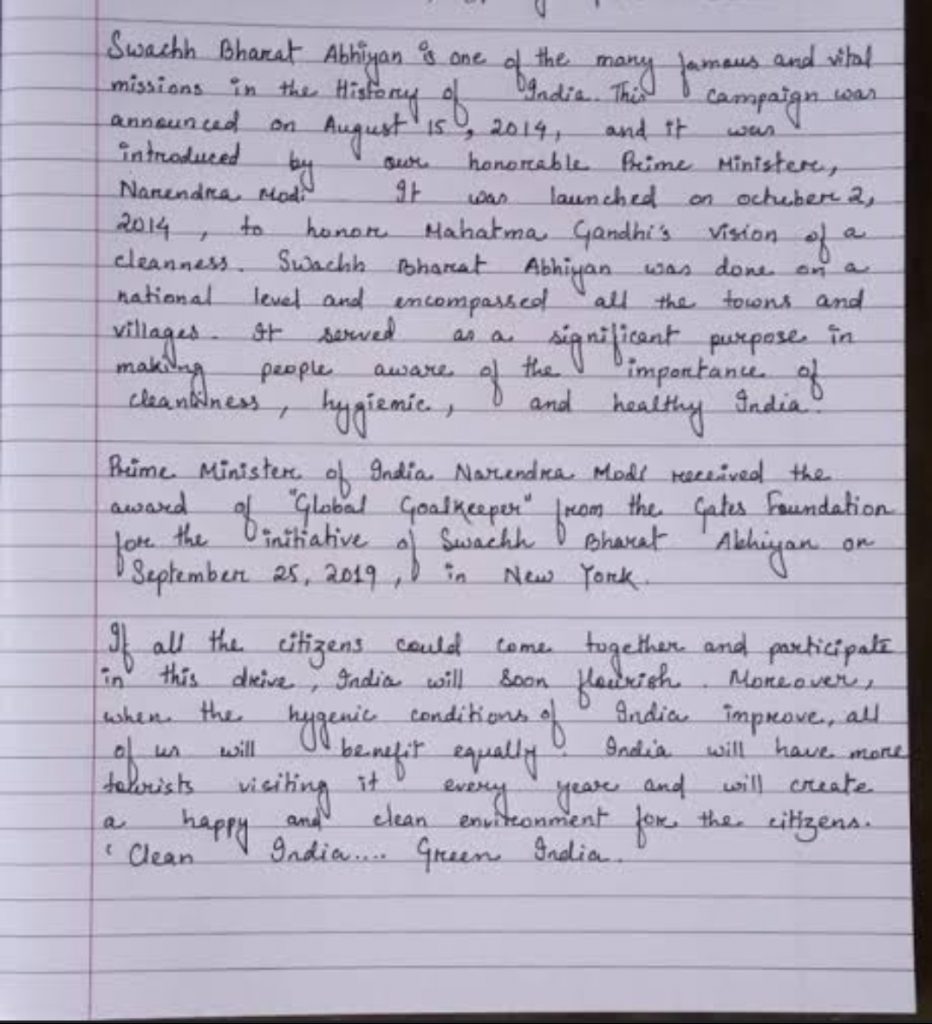 Swachh Bharat Abhiyan is one of the many famous and vital
missions in the History of India. This campaign was
announced on August 15, 2014, and it was
introduced by our honorable Prime Minister,
Narendra Modi It was launched on octuber 2,
2014, to honor Mahatma Gandhi's vision of a
cleanness. Swachh Bharat Abhiyan was done on a
national level and encompassed all the towns and
villages. It served as a significant purpose in
making people aware of the importance of
cleanliness, hygiemic, and healthy India.
Prime Minister of India Narendra Modi received the
award of "Global Goalkeeper" from the Gates Foundation
for the initiative of Swachh Bharat Abhiyan on
September 25, 2019, in New York.
If all the citizens could come together and participate
in this drive, India will soon flourish. Moreover,
when the hygenic conditions of India improve, all
of us will benefit equally. India will have more
tourists visiting it every year and will create
a happy and clean environment for the citizens.
'Clean India.... Green India.